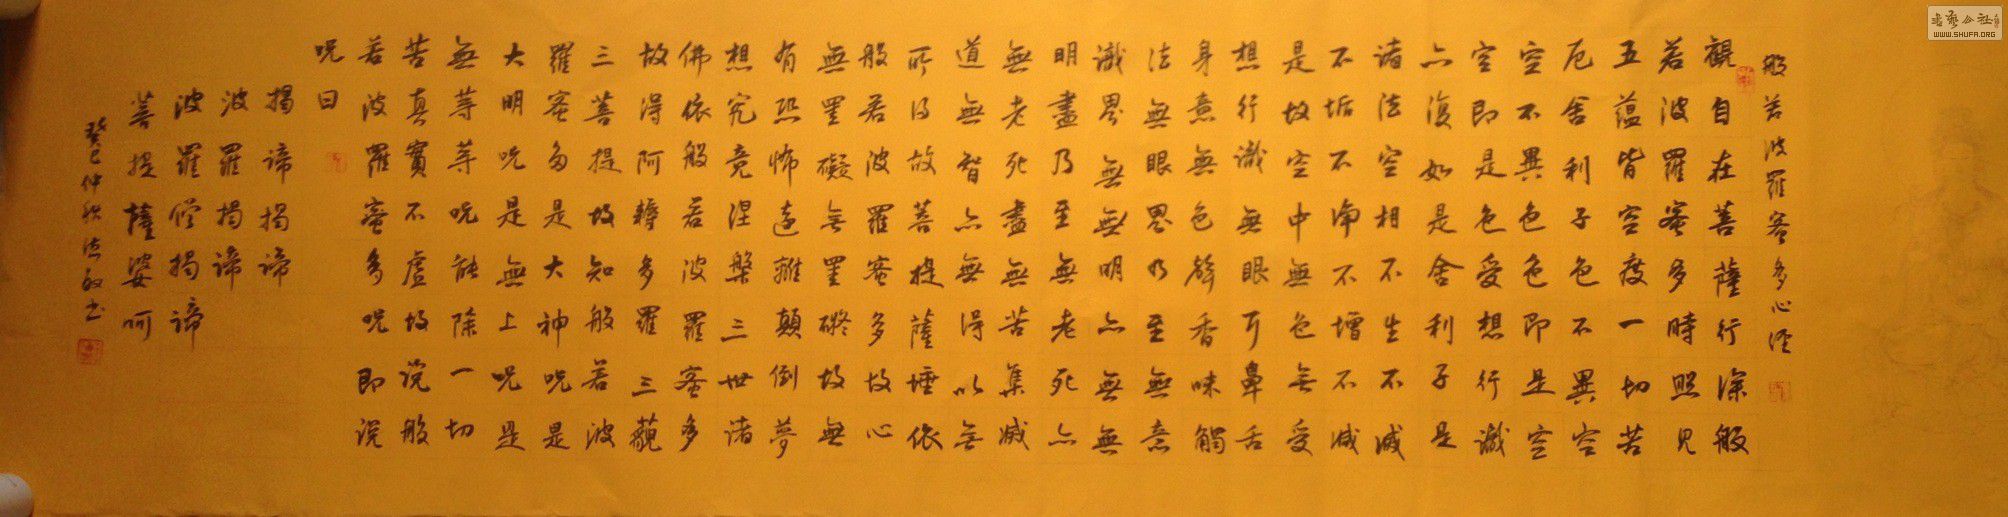 般若波羅蜜多心经
觀自在菩薩行深般
若波羅蜜多時照見
五蕴皆空度一切苦
厄舍利子色不異空
空不異色色即是空
空即是色受想行識
亦復如是舍利子是
诸法空相不生不滅
不垢不净不增不减
是故空中無色无受
想行識無眼耳鼻舌
身意無色聲香味觸
法無眼界乃至無意
識界無無明亦無無
明盡乃至無老死亦
無老死盡無苦集滅
道無智亦無得以无
所得故菩提薩埵依
般若波羅蜜多故心
無罣礙无罣礙故無
有恐怖远離顛倒夢
想究竟涅槃三世诸
佛依般若波羅蜜多
故得阿耨多羅三藐
三菩提故知般若波
羅蜜多是大神咒是
大明咒是無上咒是
無等等咒能除一切
苦真實不虛故说般
若波羅蜜多咒即说
咒曰
揭諦揭諦
波羅揭諦
波羅僧揭諦
菩提薩婆呵
癸巳仲秋书
書藝公社
WWW.SHUFA.ORG